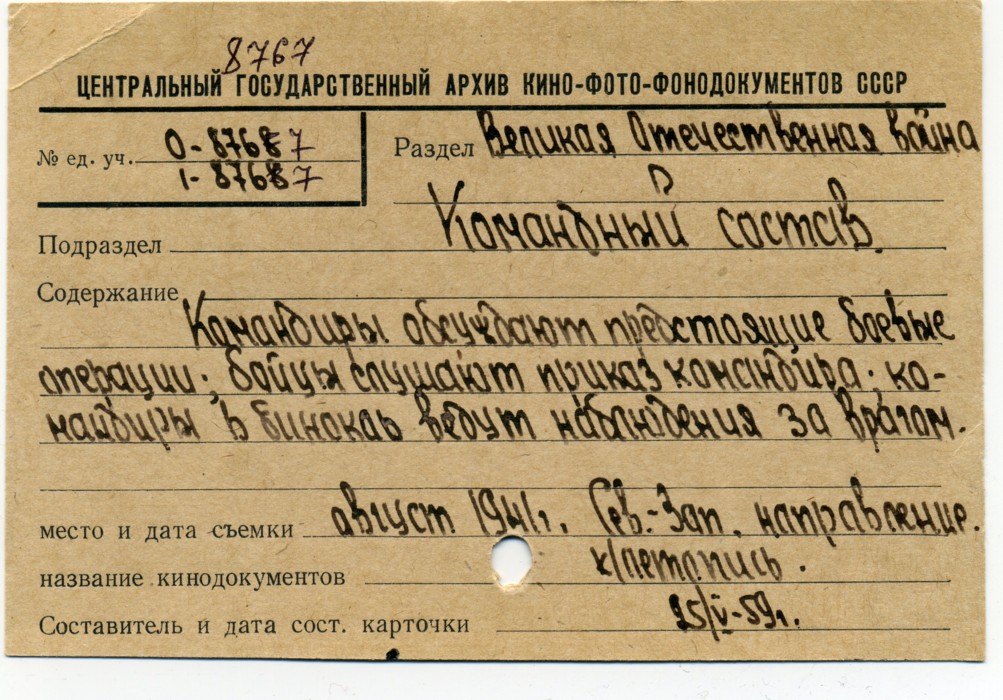 8767
ЦЕНТРАЛЬНЫЙ ГОСУДАРСТВЕННЫЙ АРХИВ КИНО-ФОТО-ФОНОДОКУМЕНТОВ СССР
№ ед. уч. 0-87687
1-87687
Раздел Великая Отечественная война
Подраздел Командный состав.
Содержание
Командиры обсуждают предстоящие боевые
операции; бойцы слушают приказ командира; ко-
мандиры в бинокль ведут наблюдения за врагом.
место и дата съемки август 1941г. Сев.-Зап. направление.
название кинодокументов к/летопись.
Составитель и дата сост. карточки 25/V-59г.